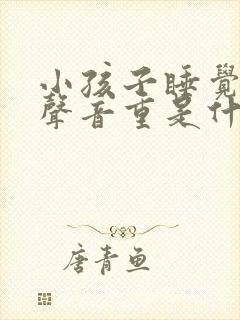 小孩子睡覺
聲音重是什
唐青魚